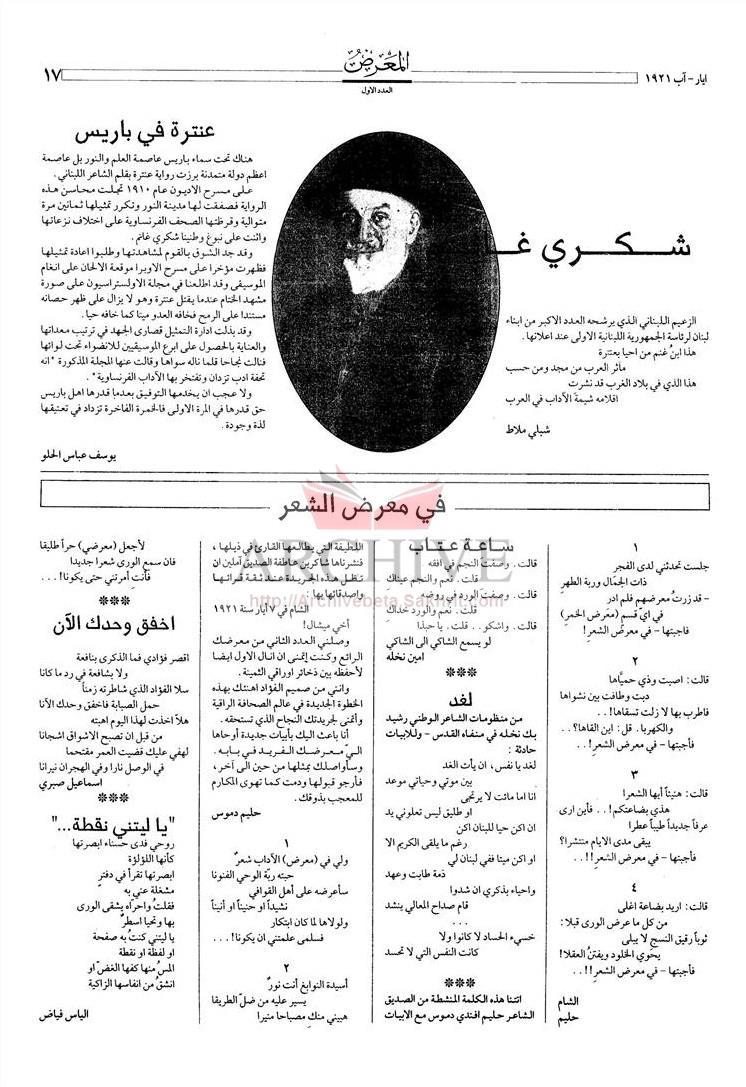 ايار - آب ١٩٢١
المعرض
العدد الاول
١٧
شكري غـ
الزعيم اللبناني الذي يرشحه العدد الاكبر من ابناء
لبنان لرئاسة الجمهورية اللبنانية الاولى عند اعلانها.
هذا ابنُ غنم من احيا بعنترة
مآثر العرب من مجد ومن حسب
هذا الذي في بلاد الغرب قد نشرت
اقلامه شيمةَ الآداب في العرب
شبلي ملاط
عنترة في باريس
هناك تحت سماء باريس عاصمة العلم والنور بل عاصمة
اعظم دولة متمدنة برزت رواية عنترة بقلم الشاعر اللبناني.
على مسرح الاديون عام ١٩١٠ تجلت محاسن هذه
الرواية فصفقت لها مدينة النور وتكرر تمثيلها ثمانين مرة
متوالية وقرظتها الصحف الفرنساوية على اختلاف نزعاتها
واثنت على نبوغ وطنينا شكري غانم.
وقد جد الشوق بالقوم لمشاهدتها وطلبوا اعادة تمثيلها
فظهرت مؤخرا على مسرح الاوبرا موقعة الالحان على انغام
الموسيقى وقد اطلعنا في مجلة الاولستراسيون على صورة
مشهد الختام عندما يقتل عنترة وهو لا يزال على ظهر حصانه
مستندا على الرمح فخافه العدو ميتا كما خافه حيا.
وقد بذلت ادارة التمثيل قصارى الجهد في ترتيب معداتها
والعناية بالحصول على ابرع الموسيقيين للانضواء تحت لوائها
فنالت نجاحا قلما ناله سواها وقالت عنها المجلة المذكورة "انه
تحفة ادب تزدان وتفتخر بها الآداب الفرنساوية".
ولا عجب ان يخدمها التوفيق بعدما قدرها اهل باريس
حق قدرها في المرة الاولى فالخمرة الفاخرة تزداد في تعتيقها
لذة وجودة.
يوسف عباس الحلو
في معرض الشعر
١
جلست تحدثني لدى الفجر
ذات الجمال وربة الطهرِ
- قد زرتُ معرضهم فلم ادر
في ايّ قسمٍ (معرَض الخمرِ)
فاجبتها - في معرضِ الشعرِ!
٢
قالت: اصبت وذي حميَّاها
دبت وطافت بين نشواها
فاطرب بها لا زلت تسقاها!..
والكهربا. قل: اين القاها؟..
فأجبتها - في معرض الشعر!..
٣
قالت: هنيئاً أيها الشعرا
هذي بضاعتكم!.. فأين ارى
عرفاً جديداً طيباً عطرا
يبقى مدى الايام منتشرا؟
فأجبتها - في معرض الشعر!!..
٤
قالت: اريد بضاعة اغلى
من كل ما عرض الورى قبلا:
ثوباً رقيق النسج لا يبلى
يحوي الخلود ويفتنُ العقلا!
فأجبتها - في معرض الشعر!!..
الشام
حليم
ساعة عتاب
قالت. وصفت النجم في افقه
قلت. نعم والنجم عيناك
قالت. وصفت الورد في روضه
قلت. نعم والورد خداك
قالت. واشكو.. قلت. يا حبذا
لو يسمع الشاكي الى الشاكي
امين نخله
***
لغد
من منظومات الشاعر الوطني رشيد
بك نخله في منفاه القدس - وللابيات
حادثة:
لغد يا نفس، ان يأت الغد
بين موتي وحياتي موعد
انا اما مائت لا يرتجى
او طليق ليس تعلوني يد
ان اكن حيا للبنان اكن
رغم ما يلقى الكريم الا
او اكن ميتا ففي لبنان لي
ذمة طابت وعهد
واحياء بذكري ان شدوا
قام صداح المعالي ينشد
خسيء الحساد لا كانوا ولا
كانت النفس التي لا تحسد
***
اتتنا هذه الكلمة المنشطة من الصديق
الشاعر حليم افندي دموس مع الابيات
اللطيفة التي يطالعها القارئ في ذيلها،
فنشرناها شاكرين عاطفة الصديق آملين ان
تظل هذه الجريدة عند ثقة قرائها
واصدقائها بها.
الشام في ٧ أيار سنة ١٩٢١
أخي ميشال!
وصلني العدد الثاني من معرضك
الرائع وكنت إتمنى ان انال الاول ايضا
لأحفظه بين ذخائر اوراقي الثمينة.
وانني من صميم الفؤاد اهنئك بهذه
الخطوة الجديدة في عالم الصحافة الراقية
وأتمنى لجريدتك النجاح الذي تستحقه.
أنا باعث اليك بأبيات جديدة أوحاها
اليّ معرضك الفريد في بابه.
وسأواصلك بمثلها من حين الى آخر،
فأرجو قبولها ودمت كما تهوى المكارم
للمعجب بذوقك.
حليم دموس
١
ولي في (معرض) الآداب شعرٌ
حبته ربّة الوحي الفنونا
سأعرضه على أهل القوافي
نشيداً او حنيناً او أنيناً
ولولاها لما كان ابتكار
فسلمى علمتني ان يكونا!...
٢
أسيدة النوابغ أنت نورٌ
يسير عليه من ضلّ الطريقا
هبيني منك مصباحا منيرا
لأجعل (معرضي) حراً طليقا
فان سمع الورى شعرا جديدا
فأنتِ أمرتني حتى يكونا!...
***
اخفق وحدك الآن
اقصر فؤادي فما الذكرى بنافعة
ولا بشافعة في رد ما كانا
سلا الفؤاد الذي شاطرته زمناً
حمل الصبابة فاخفق وحدك الآنا
هلاّ اخذت لهذا اليوم اهبته
من قبل ان تصبح الاشواق اشجانا
لهفي عليك قضيت العمر مقتحما
في الوصل نارا وفي الهجران نيرانا
اسماعيل صبري
***
"يا ليتني نقطة..."
روحي فدى حسناء ابصرتها
كأنها اللؤلؤة
ابصرتها تقرأ في دفترٍ
مشغلة عني به
فقلتُ واحرّاه يشقى الورى
بها وتحيا اسطرٌ
يا ليتني كنتُ به صفحة
او لفظة او نقطة
المسُ منها كفها الغضّ او
انشقُ من انفاسها الزاكية
الياس فياض
ARCHIVE
http://Archivebeta.Sakhrit.com